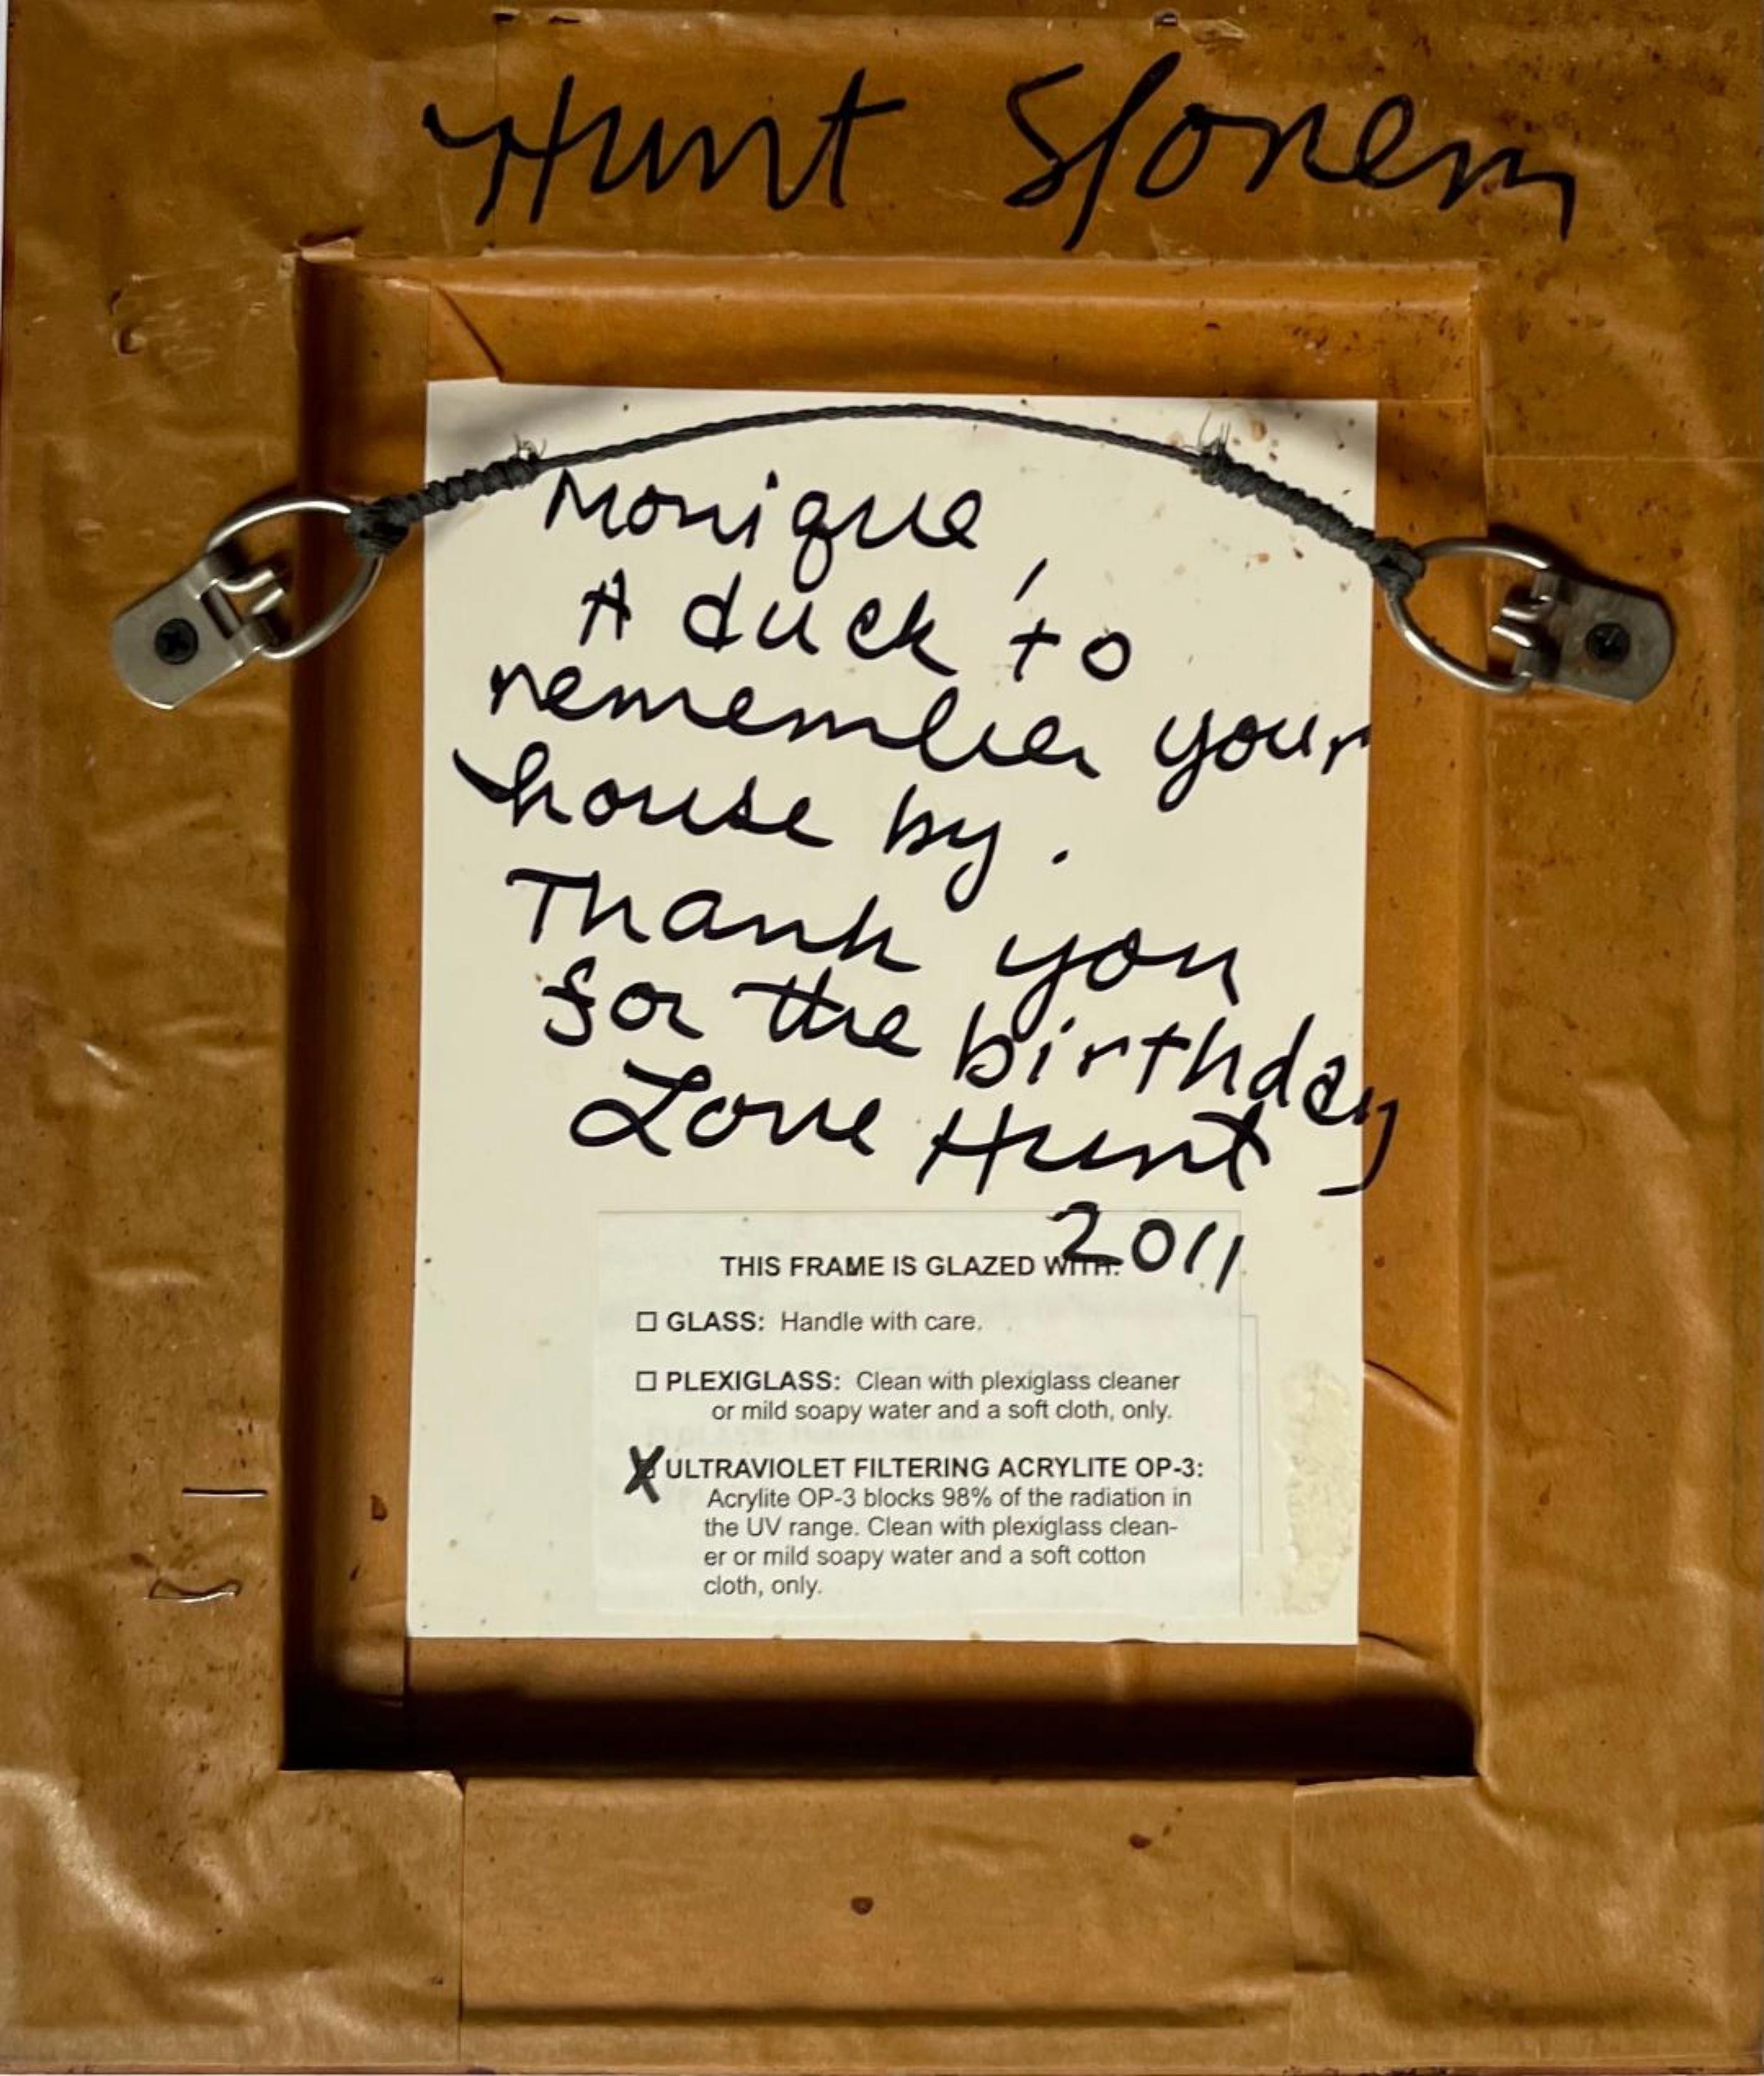 Hunt Slonem
Monique,
A duck to
remember your
house by.
Thank you
for the birthday
Love Hunt
2011
THIS FRAME IS GLAZED WITH:
☐ GLASS: Handle with care.
☐ PLEXIGLASS: Clean with plexiglass cleaner
or mild soapy water and a soft cloth, only.
☒ ULTRAVIOLET FILTERING ACRYLITE OP-3:
Acrylite OP-3 blocks 98% of the radiation in
the UV range. Clean with plexiglass clean-
er or mild soapy water and a soft cotton
cloth, only.